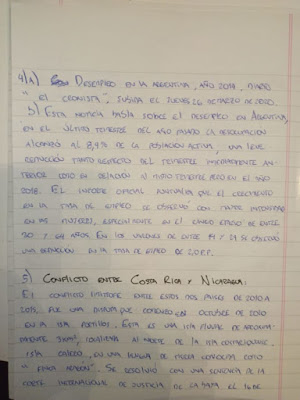 4)A) DESEMPLEO EN LA ARGENTINA, AÑO 2019, DIARIO
"EL CRONISTA", SUBIDA EL JUEVES 26 DE MARZO DE 2020.
b) ESTA NOTICIA HABLA SOBRE EL DESEMPLEO EN ARGENTINA,
EN EL ÚLTIMO TRIMESTRE DEL AÑO PASADO LA DESOCUPACIÓN
ALCANZÓ AL 8,9% DE LA POBLACIÓN ACTIVA, UNA LEVE
REDUCCIÓN TANTO RESPECTO DEL TRIMESTRE INMEDIATAMENTE AN-
TERIOR COMO EN RELACIÓN AL MISMO TRIMESTRE PERO EN EL AÑO
2018. EL INFORME OFICIAL PUNTUALIZA QUE EL CRECIMIENTO
EN LA TASA DE EMPLEO SE OBSERVÓ CON MAYOR INTENSIDAD
EN LAS MUJERES, ESPECIALMENTE EN EL RANGO ETARIO DE ENTRE
30 Y 64 AÑOS. EN LOS VARONES DE ENTRE 14 Y 29 SE OBSERVÓ
UNA REDUCCIÓN EN LA TASA DE EMPLEO DE 2,0 P.P.
5) CONFLICTO ENTRE COSTA RICA Y NICARAGUA:
EL CONFLICTO LIMÍTROFE ENTRE ESTOS DOS PAÍSES DE 2010 A
2015, FUE UNA DISPUTA QUE COMENZÓ EN OCTUBRE DE 2010
EN LA ISLA PORTILLOS. ESTA ES UNA ISLA FLUVIAL DE APROXIMA-
DAMENTE 3 KM², LOCALIZADA AL NORTE DE LA ISLA
ISLA CALERO, EN UNA LENGUA DE TIERRA CONOCIDA COMO
"FINCA ARAGÓN". SE RESOLVIÓ CON UNA SENTENCIA DE LA
CORTE INTERNACIONAL DE JUSTICIA DE LA HAYA EL 16 DE